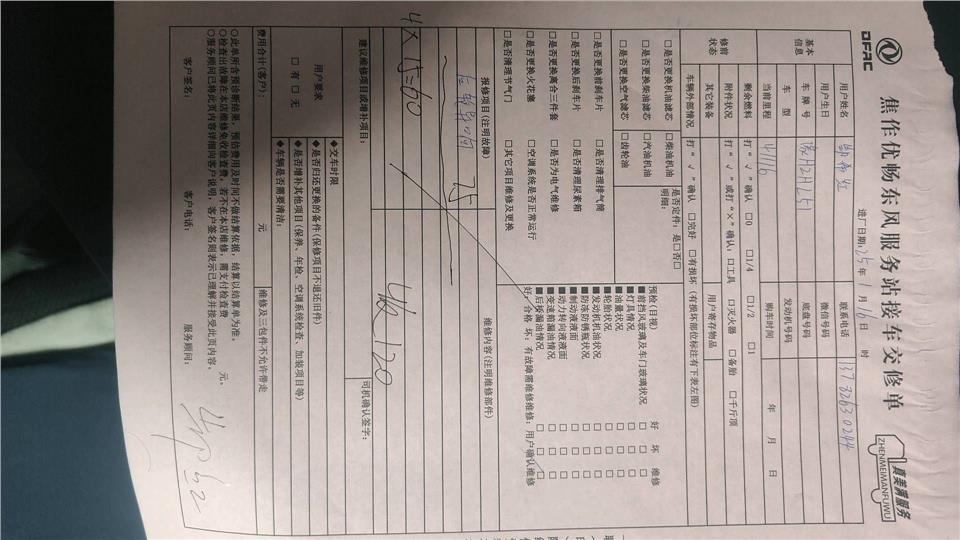 DFAC
焦作优畅东风服务站接车交修单
真美满服务
ZHENMEIMANFUWU
进厂日期:25年1月16日 时
基本信息
用户姓名
联系电话
137 8263 0244
用户生日
微信号码
车牌号
豫H2HL51
底盘号码
车型
发动机号码
当前里程
41116
购车时间
年 月 日
修前状态
剩余燃料
打“√”确认 □0 □1/4 □1/2 □1
附件状况
打“√”或打“×”确认:□工具 □灭火器 □备胎 □千斤顶
其它装备
用户寄存物品
车辆外部情况
打“√”确认 □完好 □有损坏(有损部位标注有下表左图)
□是否更换机油滤芯 □柴油机油
□是否更换柴油滤芯 □汽油机油
□是否更换空气滤芯 □齿轮油
是否定件:是□否□
明细:
□是否更换前刹车片 □是否清理排气筒
□是否更换后刹车片 □是否清理尿素箱
□是否更换离合三件套 □是否为电气维修
□是否更换火花塞 □空调系统是否正常运行
□是否清理节气门 □其它项目维修及更换
预检(目视) 好 坏 维修
■前挡风玻璃及车门玻璃状况 □ □ □
■灯具情况 □ □ □
■油量状况 □ □ □
■轮胎状况 □ □ □
■发动机机油状况 □ □ □
■防冻防锈瓶状况 □ □ □
■制动液液面 □ □ □
■动力转向液液面 □ □ □
■变速箱漏油情况 □ □ □
■后桥漏油情况 □ □ □
好:合格 坏:有故障需维修维修:用户确认维修
报修项目(注明故障)
维修内容(注明维修部件)
异响
4×15=60
120
建议维修项目或增补项目:
司机确认签字:
用户要求
□有 □无
◆交车时限
◆是否归还更换的备件(保修项目不退还旧件)
◆是否增补其他项目(保养、年检、空调系统检查、加装项目等)
◆车辆是否需要清洁:
费用合计(客户): 元
维修及三包件不允许带走
○此单所含预诊断结果,预估费用及时间不做结算依据,结算以结算单为准。
○检查出故障在本店维修免收检查费,若不在本店维修,需支付检查费 元。
○服务顾问已将此页内容详细向客户说明,客户签名则表示已理解并接受此页内容。
客户签名: 客户电话: 服务顾问: